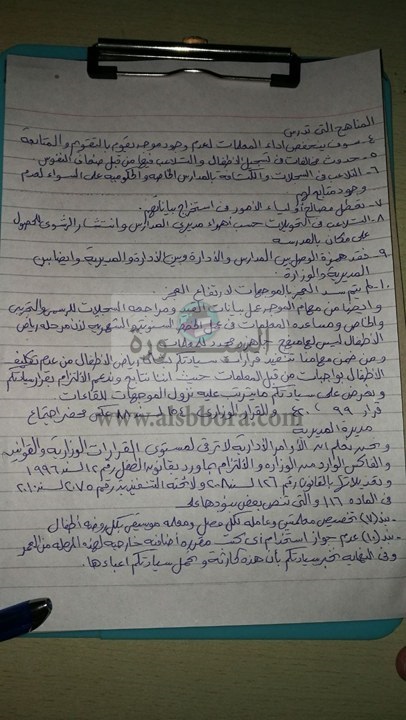 المناهج التى تدرس
٤- سوف ينخفض اداء المعلمات لعدم وجود موجه يقوم بالتقويم والمتابعة
٥- حدوث مخالفات فى تسجيل الأطفال والتلاعب فيها من قبل ضعاف النفوس
٦- التلاعب فى السجلات والكثافة بالمدارس الخاصة والحكومية على السواء لعدم
وجود متابع لهم
٧- تعطل مصالح أولياء الأمور فى استخراج بياناتهم
٨- التلاعب فى التحويلات حسب أهواء مديرى المدارس وانتشار الرشوى للحصول
على مكان بالمدرسة
٩- فقد همزة الوصل بين المدارس والأدارة وبين الأدارة والمديرية وايضا بين
المديرية والوزارة.
١٠- لم يتم سد العجز بالموجهات لارتفاع العجز
وايضا من مهام الموجه عمل بيانات ومراجعة السجلات للرسمى والتجريبى
والخاص ومساعدة المعلمات فى عمل الخطط السنوية والشهرية لأن مرحلة رياض
الأطفال ليس لها منهج
ومن ضمن مهامنا تنفيذ قرارات سيادتكم رياض الأطفال من عدم تكليف
الأطفال بواجبات من قبل المعلمات حيث اننا نتابع وندعم الألتزام بقرار سيادتكم
ونعرض على سيادتكم ما يترتب عليه نزول الموجهات للقاعات
قرار ٩٩ والقرار الوزارى على محضر اجتماع
مديرة المديرية
ونحن نعلم ان الأوامر الأدارية لا ترقى لمستوى القرارات الوزارية والقوانين
والفاكس الوارد من الوزارة والالتزام بما ورد بقانون الطفل رقم ١٢ لسنة ١٩٩٦
بالقانون رقم ١٢٦ لسنة ٢٠٠٨ ولائحة التنفيذية رقم ٢٠٧٥ لسنة ٢٠١٠
فى المادة ١١٦ والتى تنص بعض بنودها على
بند (٧) تخصيص معلمتين وعاملة لكل فصل ومعلمة موسيقى لكل روضة أطفال
بند (١٠) عدم جواز استخدام أى كتب مقررة أضافية خارجية لهذه المرحلة من العمر
وفى النهاية نخبر سيادتكم بأن هذه كارثة و سيادتكم اعباءها.
السبورة
www.alsbbora.com